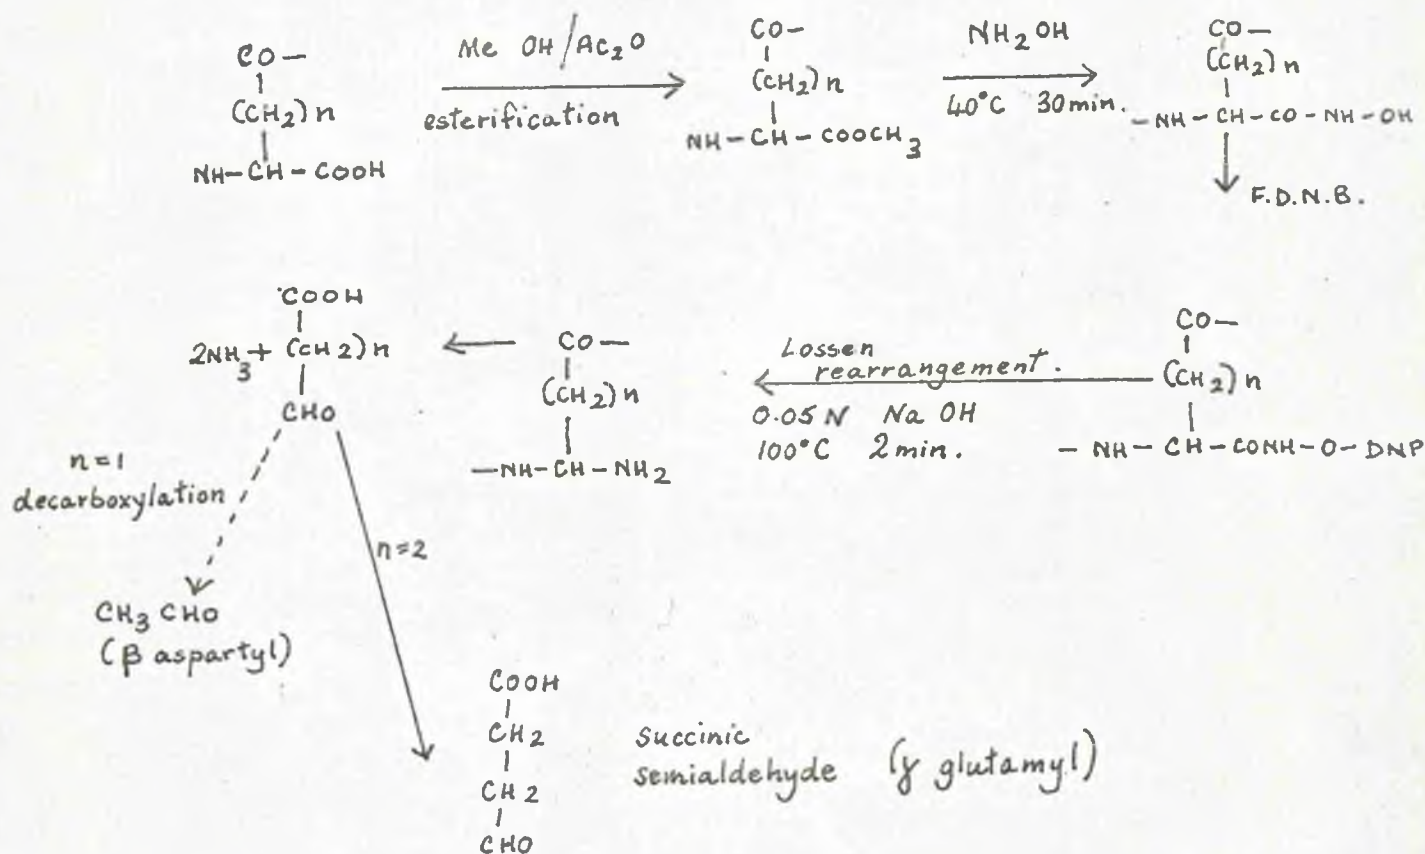 CO—
(CH2)n
NH—CH—COOH
Me OH/Ac2O
esterification
CO—
(CH2)n
NH—CH—COOCH3
NH2OH
40°C 30min.
CO—
(CH2)n
—NH—CH—CO—NH—OH
F.D.N.B.
CO—
(CH2)n
—NH—CH—CONH—O—DNP
Lossen
rearrangement.
0.05N NaOH
100°C 2min.
CO—
(CH2)n
—NH—CH—NH2
COOH
2NH3+ (CH2)n
CHO
n=1
decarboxylation
CH3CHO
(β aspartyl)
n=2
COOH
CH2
CH2
CHO
Succinic
semialdehyde (γ glutamyl)